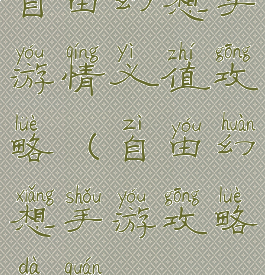 自由幻想手
yóu qíng yì zhí gōng
游情义值攻
lüè zì yóu huàn
略（自由幻
xiǎng shǒu yóu gōng lüè
想手游攻略
dà quán